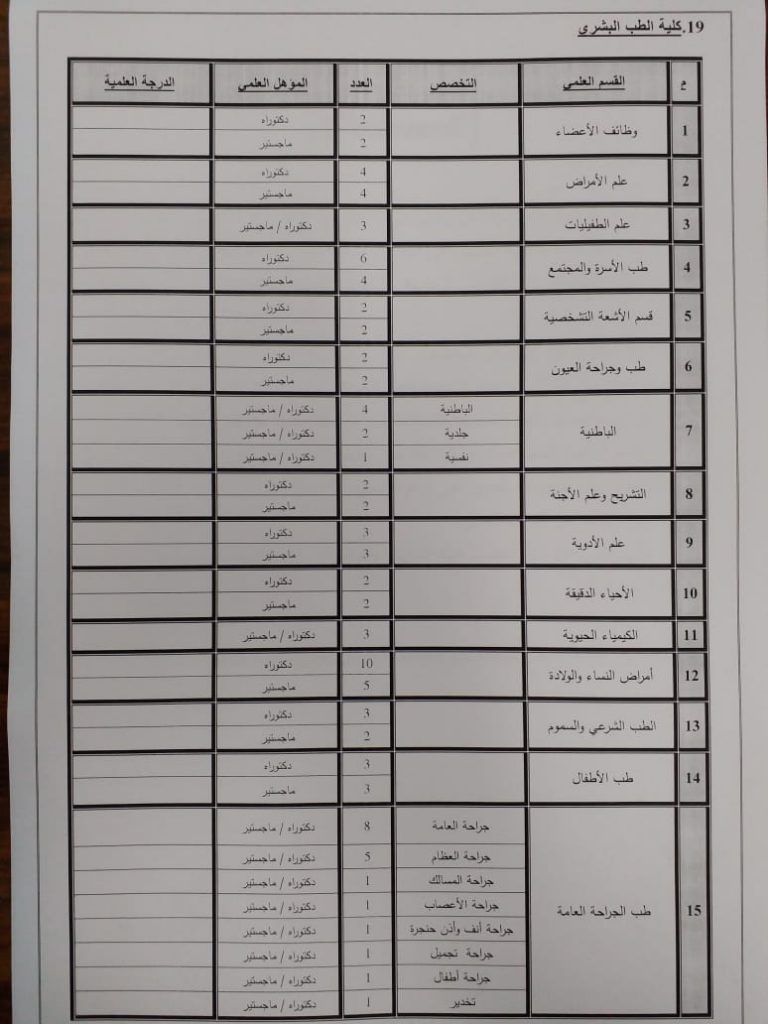 19.كلية الطب البشري
م القسم العلمي التخصص العدد المؤهل العلمي الدرجة العلمية
1 وظائف الأعضاء 2 دكتوراه
2 ماجستير
2 علم الأمراض 4 دكتوراه
4 ماجستير
3 علم الطفيليات 3 دكتوراه / ماجستير
4 طب الأسرة والمجتمع 6 دكتوراه
4 ماجستير
5 قسم الأشعة التشخصية 2 دكتوراه
2 ماجستير
6 طب وجراحة العيون 2 دكتوراه
2 ماجستير
7 الباطنية الباطنية 4 دكتوراه / ماجستير
جلدية 2 دكتوراه / ماجستير
نفسية 1 دكتوراه / ماجستير
8 التشريح وعلم الأجنة 2 دكتوراه
2 ماجستير
9 علم الأدوية 3 دكتوراه
3 ماجستير
10 الأحياء الدقيقة 2 دكتوراه
2 ماجستير
11 الكيمياء الحيوية 3 دكتوراه / ماجستير
12 أمراض النساء والولادة 10 دكتوراه
5 ماجستير
13 الطب الشرعي والسموم 3 دكتوراه
2 ماجستير
14 طب الأطفال 3 دكتوراه
3 ماجستير
15 طب الجراحة العامة جراحة العامة 8 دكتوراه / ماجستير
جراحة العظام 5 دكتوراه / ماجستير
جراحة المسالك 1 دكتوراه / ماجستير
جراحة الأعصاب 1 دكتوراه / ماجستير
جراحة أنف وأذن حنجرة 1 دكتوراه / ماجستير
جراحة تجميل 1 دكتوراه / ماجستير
جراحة أطفال 1 دكتوراه / ماجستير
تخدير 1 دكتوراه / ماجستير